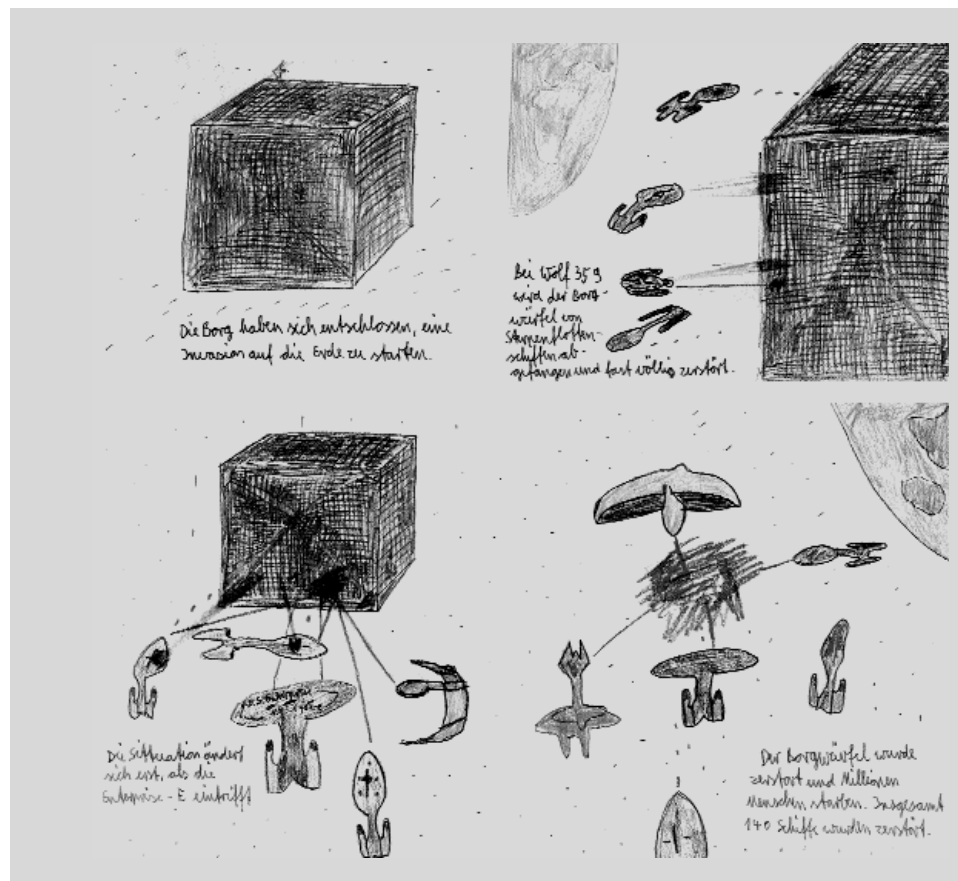 Die Borg haben sich entschlossen, eine
Invasion auf die Erde zu starten.
Bei Wolf 359
wird der Borg-
würfel von
Sternenflotten-
schiffen ab-
gefangen und fast völlig zerstört.
Die Sittuation ändert
sich erst, als die
Enterprise-E eintrifft
Der Borgwürfel wurde
zerstört und Millionen
Menschen starben. Insgesamt
140 Schiffe wurden zerstört.